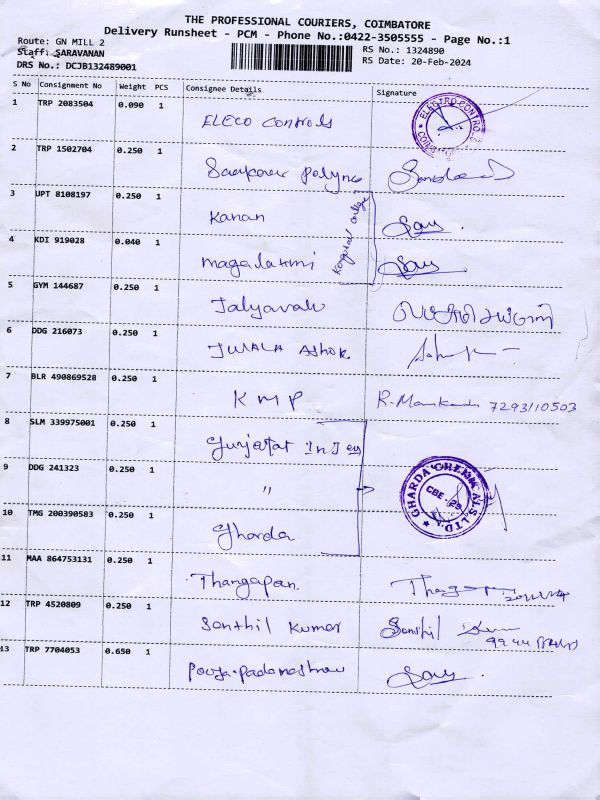 THE PROFESSIONAL COURIERS, COIMBATORE
Delivery Runsheet - PCM - Phone No.:0422-3505555 - Page No.:1
Route: GN MILL 2 RS No.: 1324890
Staff: SARAVANAN RS Date: 20-Feb-2024
DRS No.: DCJB132489001
S No Consignment No Weight PCS Consignee Details Signature
1 TRP 2083504 0.090 1
ELECO Controls
2 TRP 1502704 0.250 1
3 UPT 8108197 0.250 1
Kanan
4 KDI 919028 0.040 1
magalaxmi
5 GYM 144687 0.250 1
6 DDG 216073 0.250 1
JWALA ASHOK
7 BLR 490869528 0.250 1
KMP 7293110503
8 SLM 339975001 0.250 1
9 DDG 241323 0.250 1
"
GHARDA CHEMICALS LTD.
CBE - 29
10 TMG 200390583 0.250 1
Gharda
11 MAA 864753131 0.250 1
Thangapan
12 TRP 4520809 0.250 1
Santhil Kumar
13 TRP 7704053 0.650 1